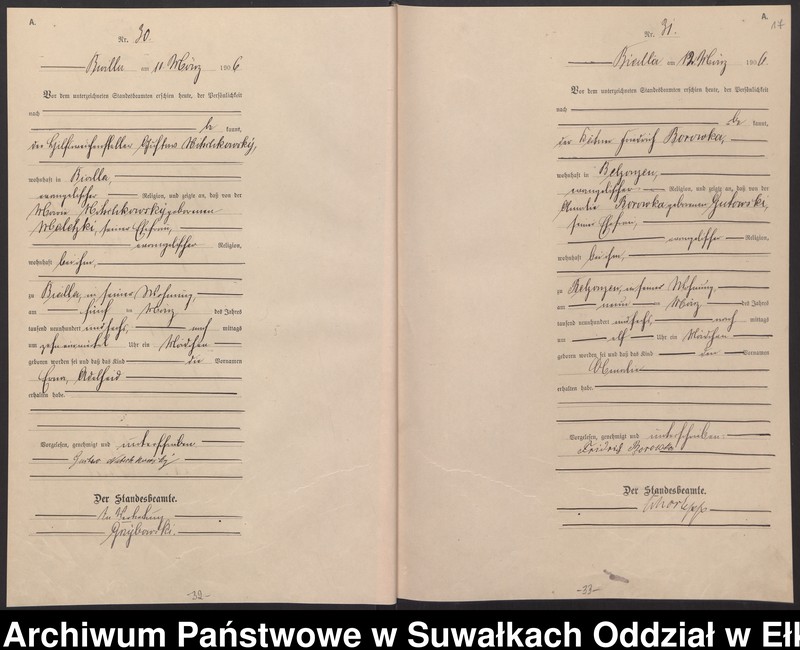 A.
Nr. 30.
Bialla am 11 März 1906
Vor dem unterzeichneten Standesbeamten erschien heute, der Persönlichkeit
nach
be kannt,
der Hülfsweichensteller Gustav
wohnhaft in Bialla,
evangelischer Religion, und zeigte an, daß von der
Marie geborenen
seiner Ehefrau,
evangelischer Religion,
wohnhaft bei ihm,
zu Bialla, in seiner Wohnung,
am fünf ten März des Jahres
tausend neunhundert und sechs, nach mittags
um zehn Uhr ein Mädchen
geboren worden sei und daß das Kind die Vornamen
Erna, Adelheid
erhalten habe.
Vorgelesen, genehmigt und unterschrieben
Gustav
Der Standesbeamte.
In Vertretung
Grzybowski.
-32-
A.
17
Nr. 31.
Bialla am 12 März 1906
Vor dem unterzeichneten Standesbeamten erschien heute, der Persönlichkeit
nach
be kannt,
der Friedrich Borowka,
wohnhaft in Belzonzen,
evangelischer Religion, und zeigte an, daß von der
Amalie Borowka geborenen Gutowski,
seiner Ehefrau,
evangelischer Religion,
wohnhaft bei ihm,
zu Belzonzen, in seiner Wohnung,
am neun ten März des Jahres
tausend neunhundert und sechs, nach mittags
um elf Uhr ein Mädchen
geboren worden sei und daß das Kind den Vornamen
erhalten habe.
Vorgelesen, genehmigt und unterschrieben:
Fridrich Borowka
Der Standesbeamte.
-33-
Archiwum Państwowe w Suwałkach Oddział w Ełk